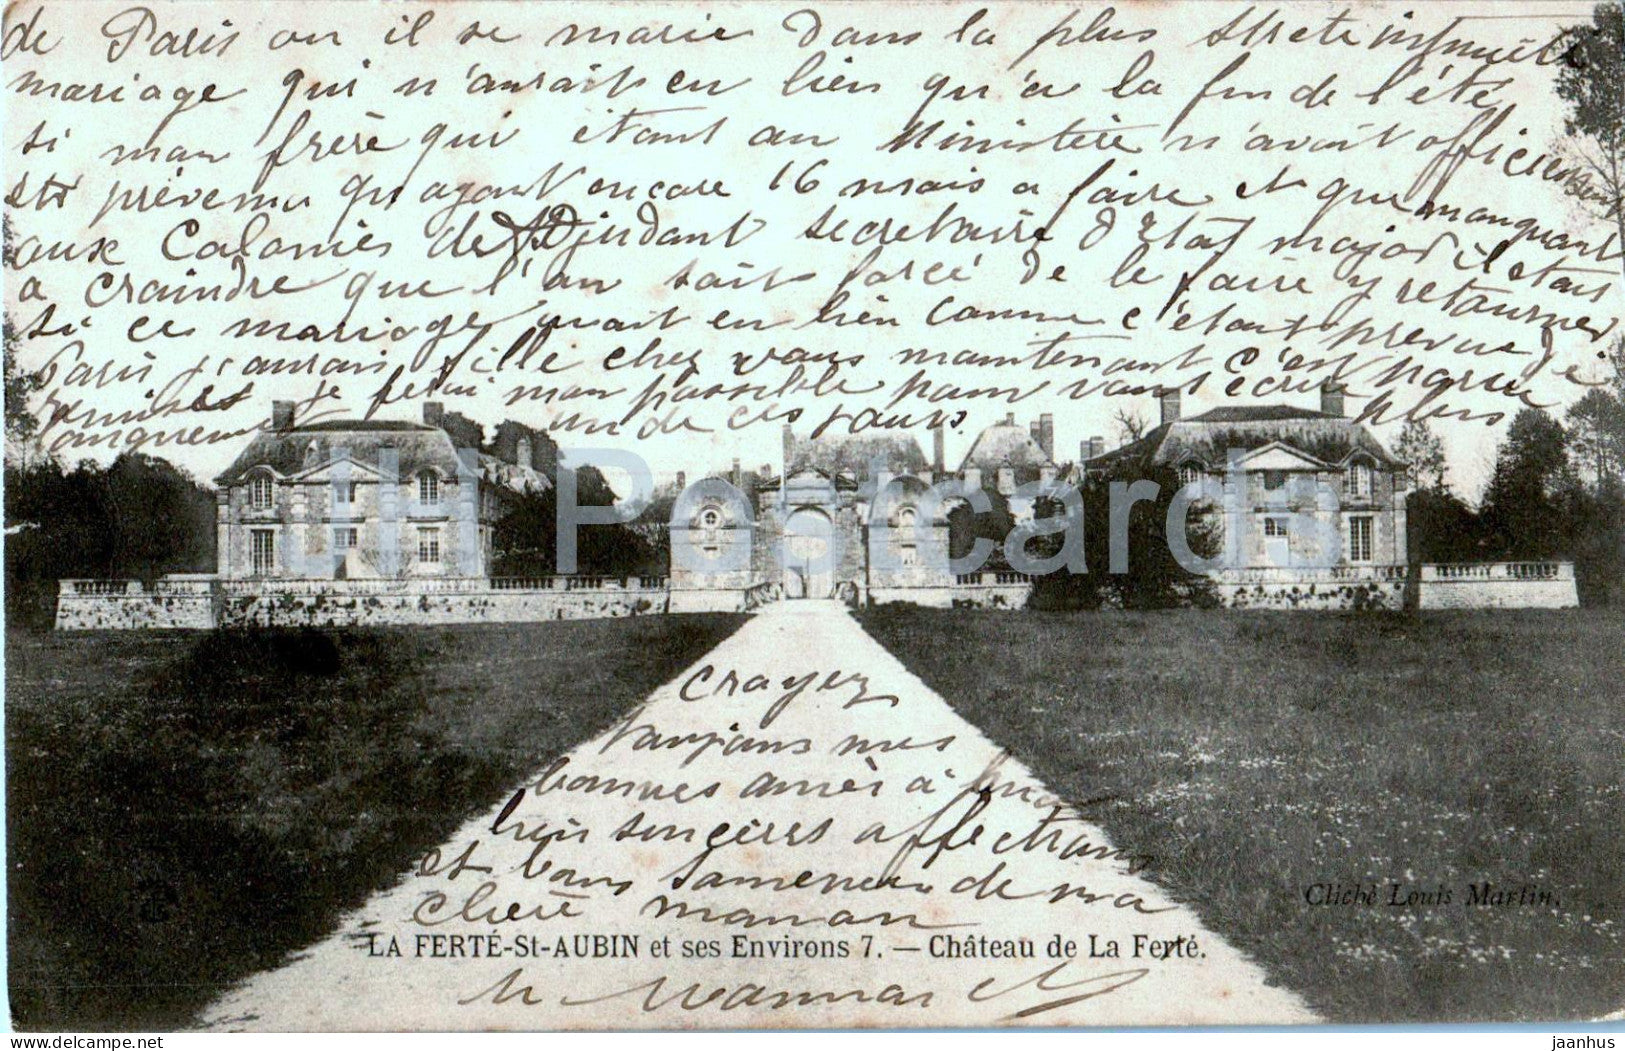 de Paris ou il se marie dans la plus strete intimité
mariage qui n'aurait eu lieu qu'a la fin de l'été
si mon frère qui étant au Ministère n'avait officieusement
été prévenu qu'ayant encore 16 mois a faire et que manquant
aux Colonies de Adjudant secretaire d'Etat major il étais
a craindre que l'on soit forcé de le faire y retourner
si ce mariage avait eu lieu comme c'était prévue de
Paris j'aurais filé chez vous maintenant c'est partie
remise je ferai mon possible pour vous écrire plus
longuement un de ces jours.
Croyez
toujours mes
bonnes amies à nos
bien sincères affections
et bons de ma
chère maman
LA FERTÉ-St-AUBIN et ses Environs 7. — Château de La Ferté.
Cliché Louis Martin.
HH Postcards
delcampe.net
jaanhus